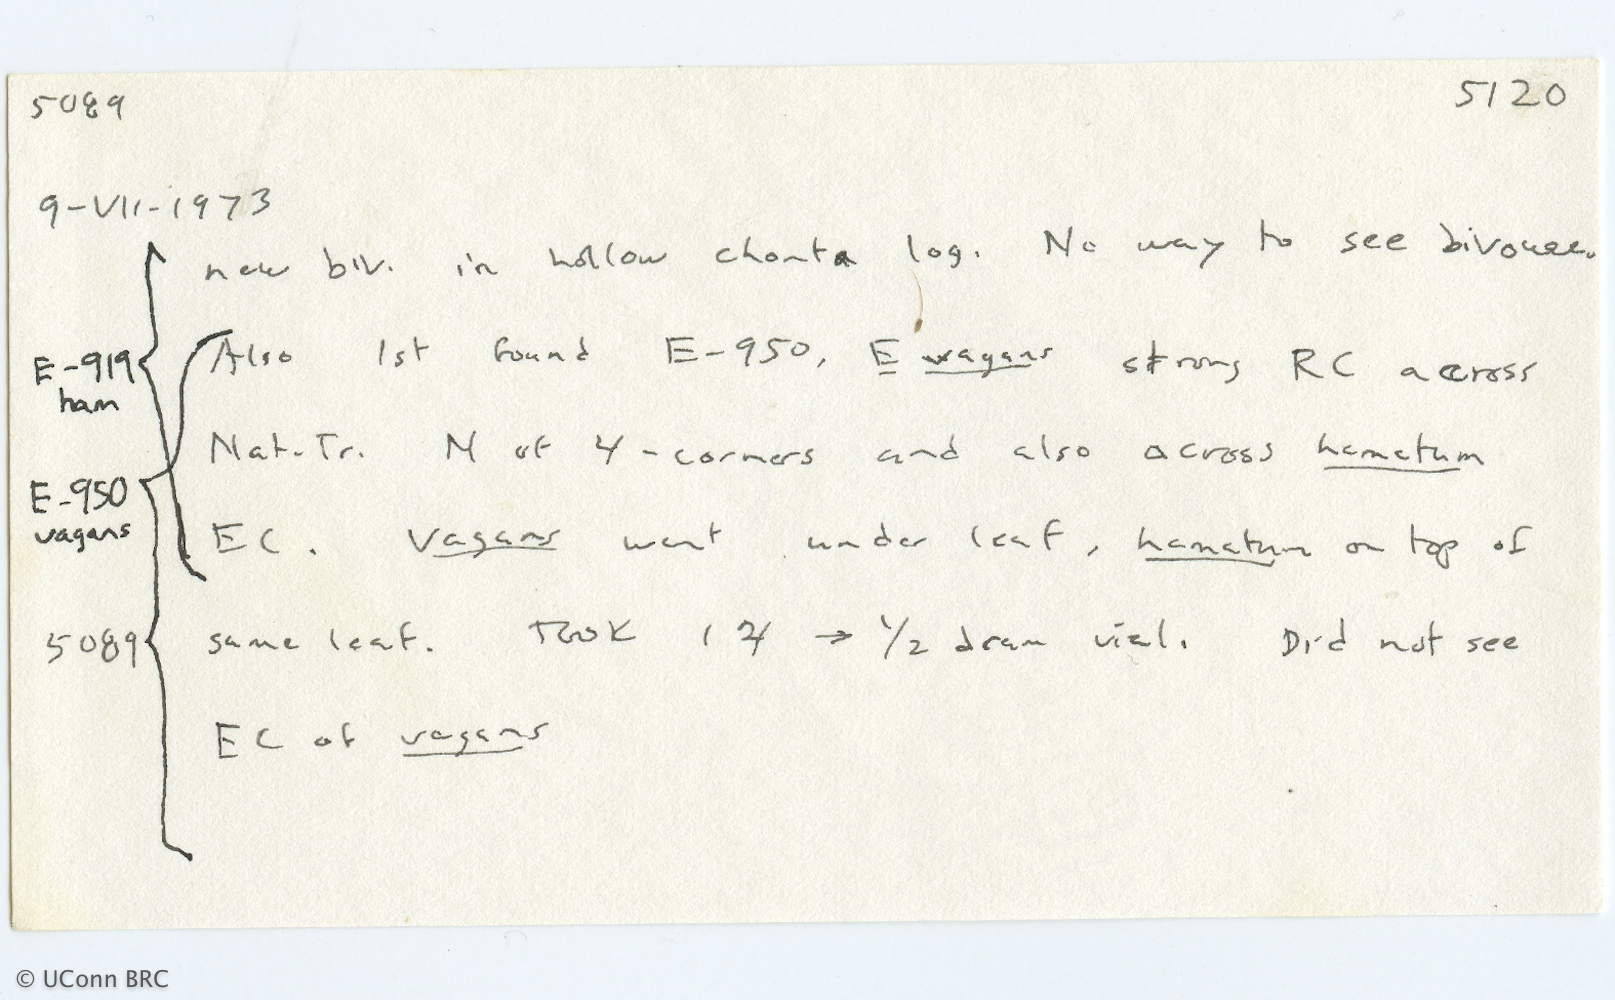 5089 5120
9-VII-1973
new biv. in hollow chonta log. No way to see bivouac.
E-919 Also 1st found E-950, E vagans strong RC across
ham
Nat. Tr. N of 4-corners and also across hamatum
E-950
vagans EC. Vagans went under leaf, hamatum on top of
5089 same leaf. Took → 1/2 dram vial. Did not see
EC of vagans
© UConn BRC